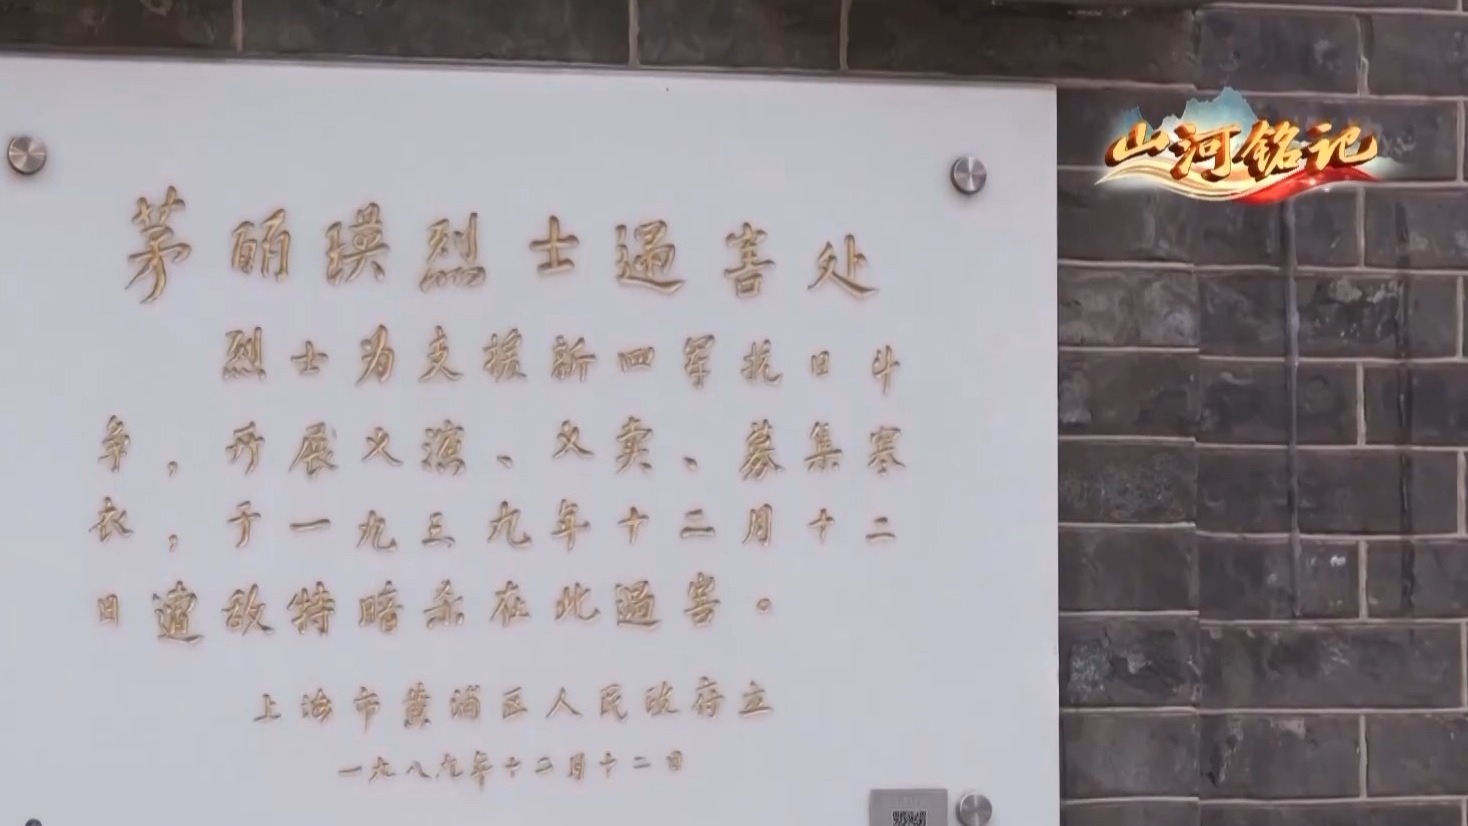 山河铭记
茅丽瑛烈士遇害处
烈士为支援新四军抗日斗
争，开展义演、义卖、募集寒
衣，于一九三九年十二月十二
日遭敌特暗杀在此遇害。
上海市黄浦区人民政府立
一九八九年十二月十二日